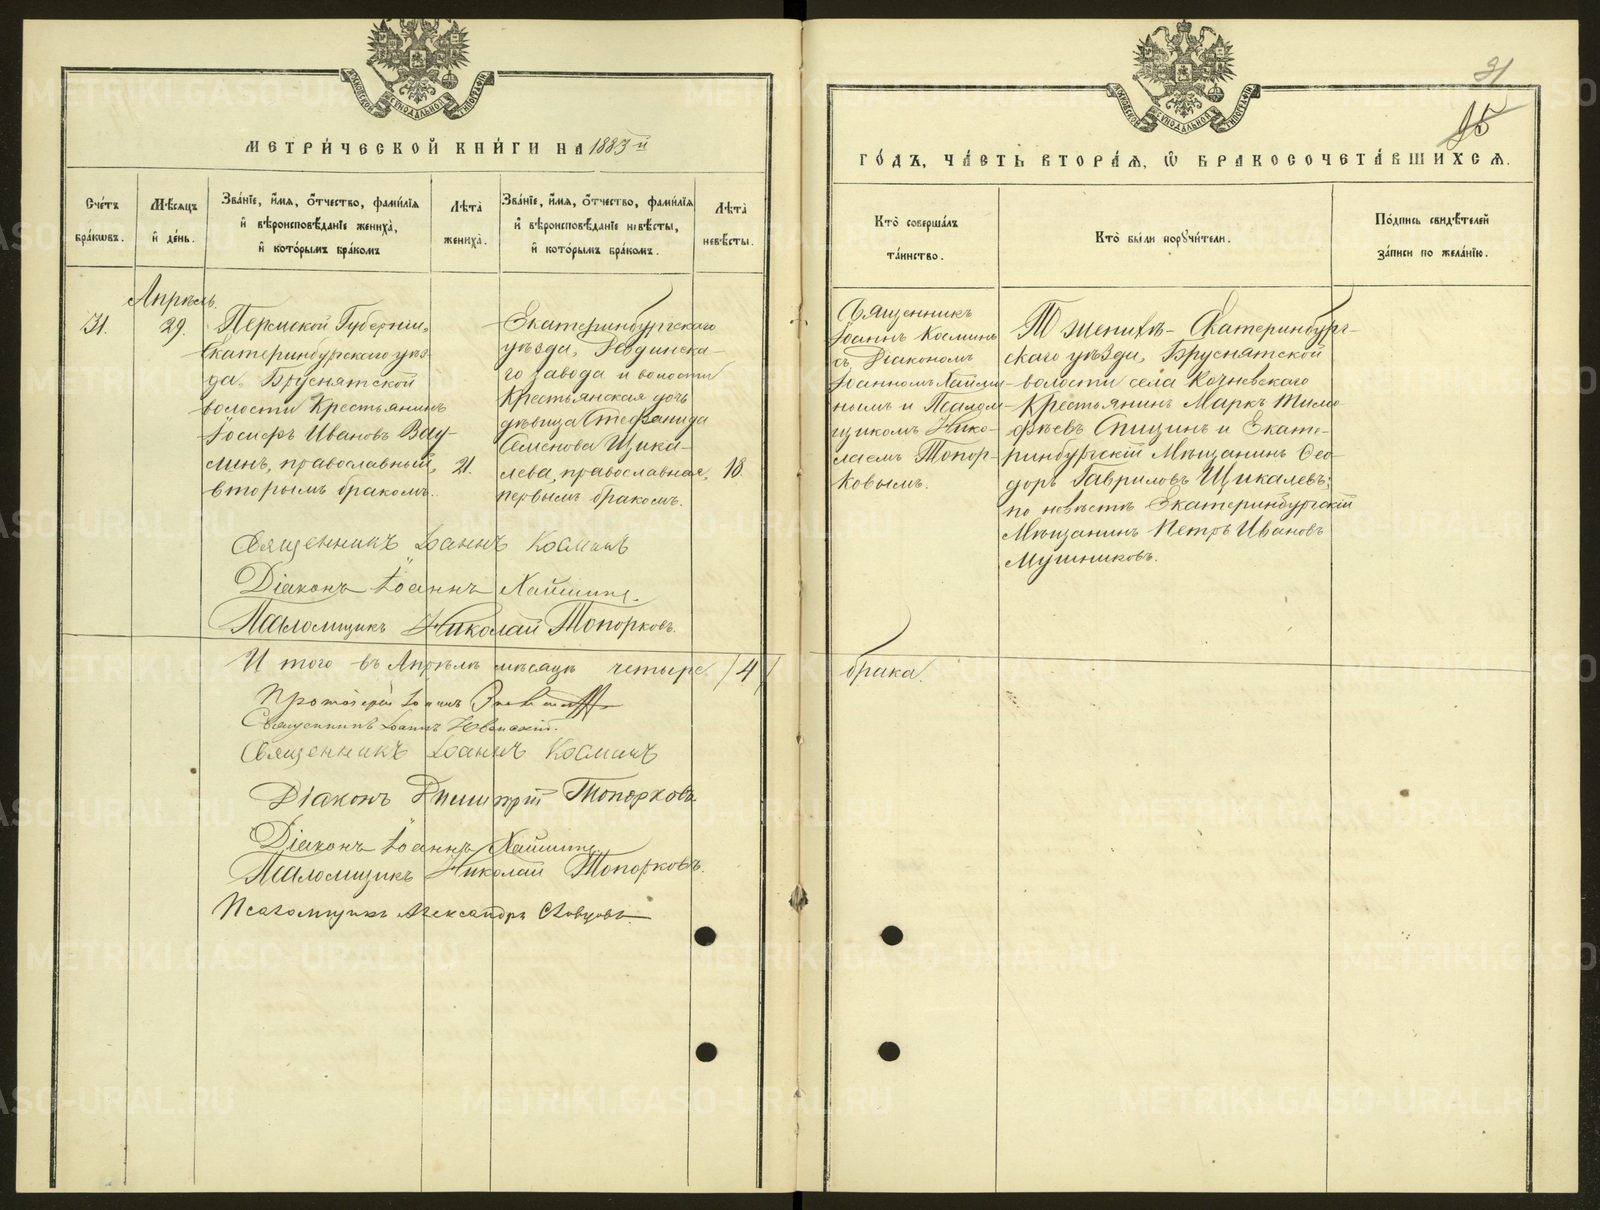 МЕТРИ́ЧЕСКОЙ КНИ́ГИ НА 1883 й
Сче́тъ
бра́ковъ.
Мѣ́сяцъ
и҆ де́нь.
Зва́нїе, и҆́мѧ, ѻ҆́тчество, фами́лїѧ
и҆ вѣроисповѣ́данїе жениха̀,
и҆ кото́рымъ бра́комъ
Лѣ́та
жениха̀.
Зва́нїе, и҆́мѧ, ѻ҆́тчество, фами́лїѧ
и҆ вѣроисповѣ́данїе невѣ́сты,
и҆ кото́рымъ бра́комъ.
Лѣ́та
невѣ́сты.
Апрѣль.
31.
29.
Пермской Губерніи,
Екатеринбургскаго уѣз-
да, Бруснятской
волости Крестьянинъ
Іосифъ Ивановъ Вау-
линъ, православный,
вторымъ бракомъ.
21.
Екатеринбургскаго
уѣзда, Ревдинска-
го завода и волости
Крестьянская дочь
дѣвица Стефанида
Семенова Щика-
лева, православная,
первымъ бракомъ.
18
Священникъ Іоаннъ Косминъ
Діаконъ Іоаннъ
Псаломщикъ Николай Топорковъ.
И того въ Апрѣлѣ мѣсяцѣ четыре /4/
Протоіерей Іоаннъ
Священникъ Іоаннъ
Священникъ Іоаннъ Косминъ
Діаконъ Димитрій Топорковъ
Діаконъ Іоаннъ
Псаломщикъ Николай Топорковъ.
Псаломщикъ Александръ Словцовъ
31
95
ГО́ДЪ, ЧА́СТЬ ВТОРА́Ѧ, Ѽ БРАКОСОЧЕТА́ВШИХСѦ.
Кто̀ соверша́лъ
та́инство.
Кто̀ бы́ли порꙋчи́тели.
По́дпись свидѣ́телей
за́писи по жела́нїю.
Священникъ
Іоаннъ Косминъ
съ Діакономъ
Іоанномъ
нымъ и Псалом-
щикомъ Нико-
лаемъ Топор-
ковымъ.
По женихѣ - Екатеринбург-
скаго уѣзда, Бруснятской
волости села Кочневскаго
Крестьянинъ Маркъ Тимо-
фѣевъ Спицинъ и Екате-
ринбургскій Мѣщанинъ Ѳео-
доръ Гавриловъ Щикалевъ;
по невѣстѣ Екатеринбургскій
Мѣщанинъ Петръ Ивановъ
Мушниковъ.
брака.
METRIKI.GASO-URAL.RU